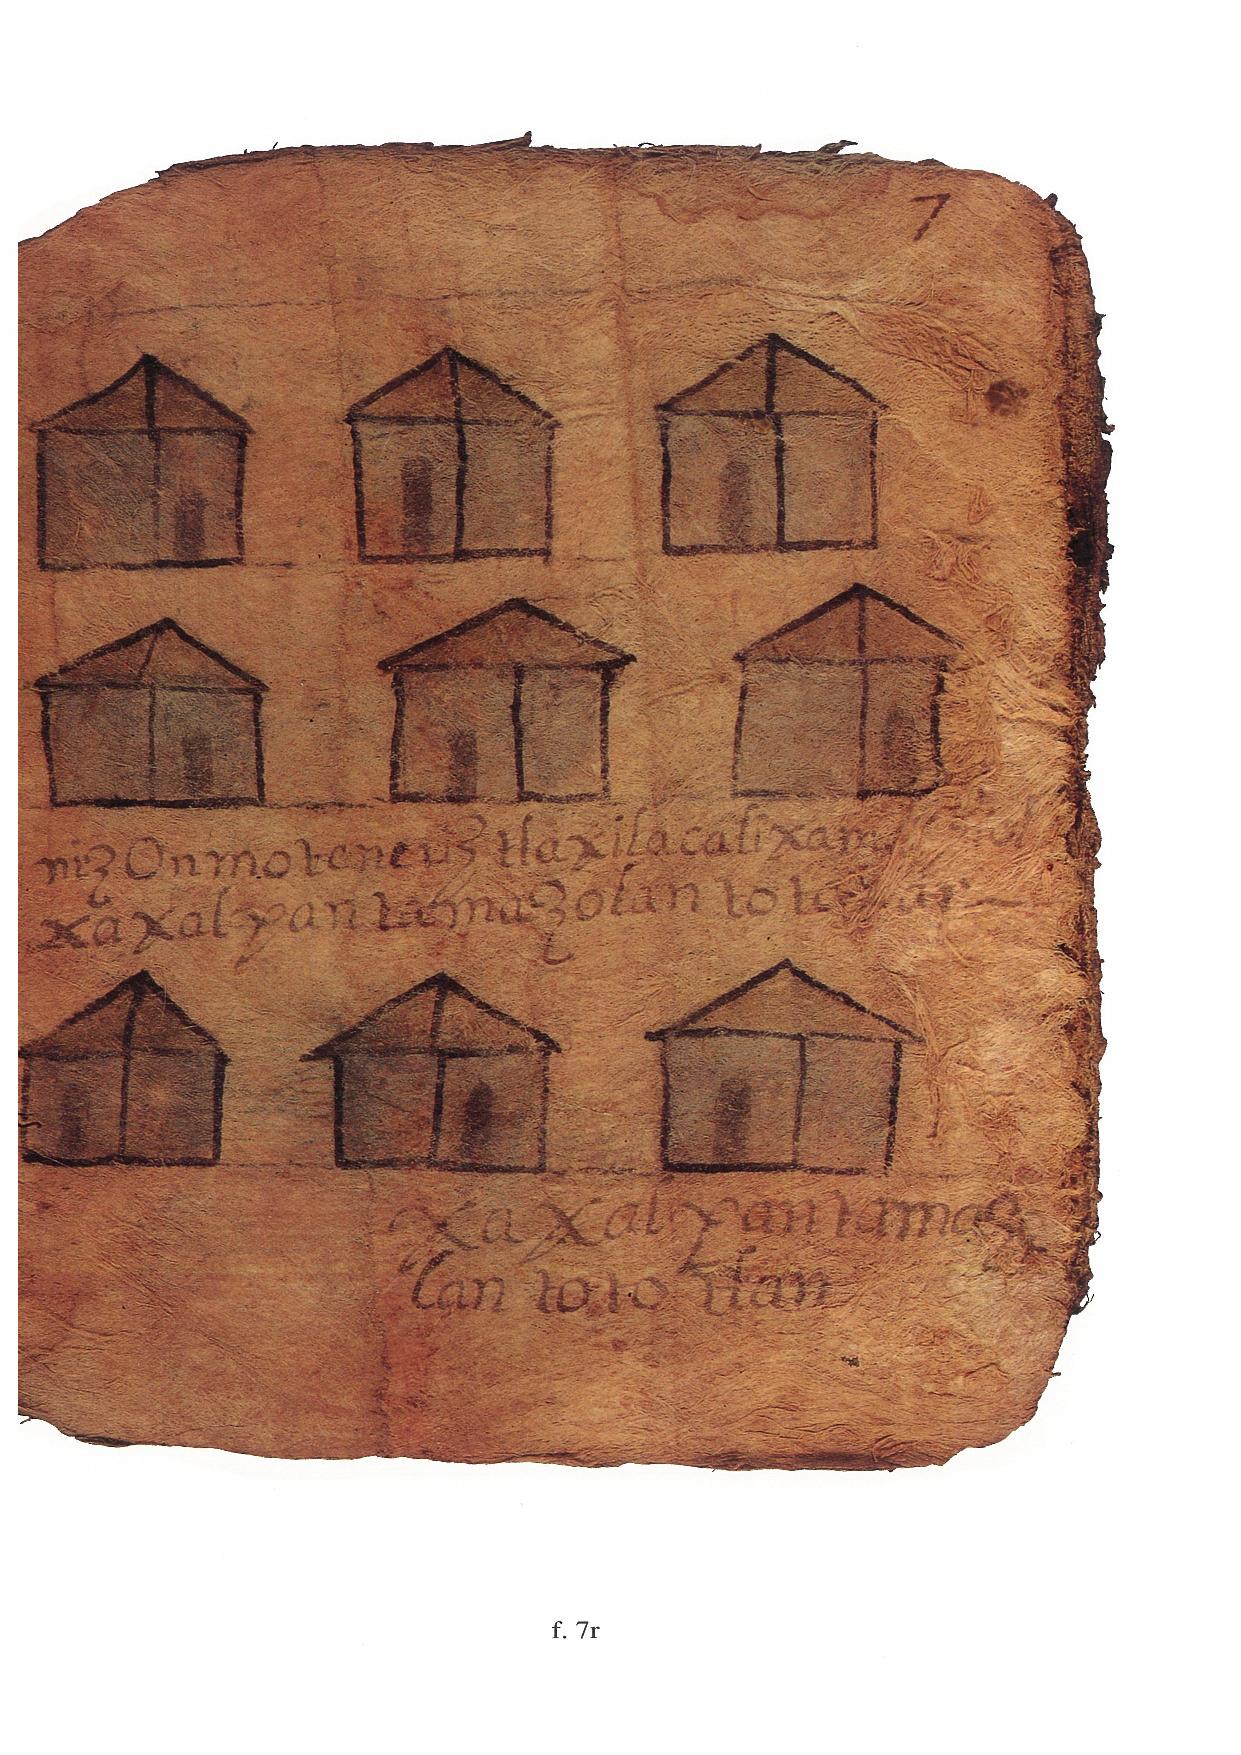 7
niȝ Onmoteneuȝ tlaxilacalixam
xaxalyan tamaçolan toto
xaxalyan tamaç
lan tototlan
f. 7r